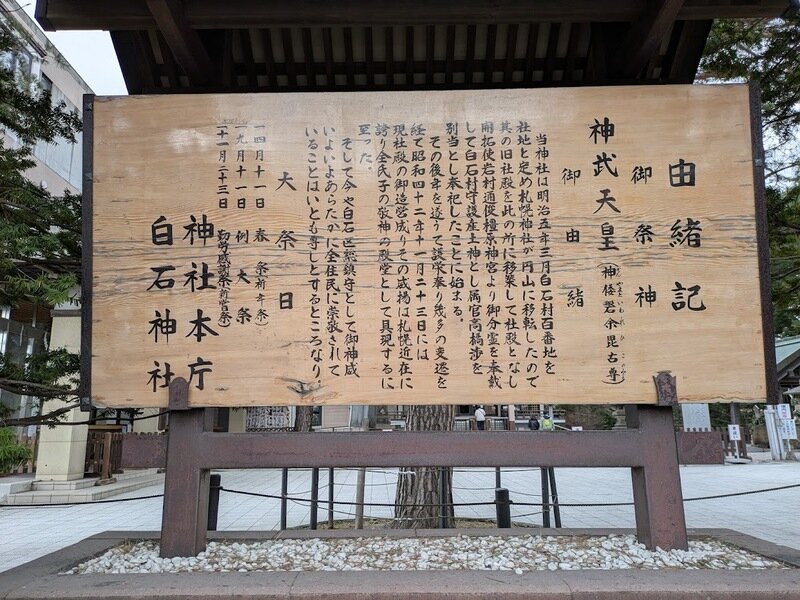 由緒記
御祭神
神武天皇(神倭磐余毘古尊)
御由緒
当神社は明治五年三月白石村百番地を
社地と定め札幌神社が円山に移転したので
其の旧社殿を此の所に移築して社殿となし
開拓使岩村通俊橿原神宮より御分霊を奉戴
して白石村守護産土神とし属官高橋渉を
別当とし奉祀したことに始まる。
その後年を逐うて誠栄奉り幾多の変遷を
経て昭和四十二年十一月二十三日には
現社殿の御造営成りその威揚は札幌近在に
誇り全氏子の敬神の殿堂として具現するに
至った。
そして今や白石区総鎮守として御神威
いよいよあらたかに全住民に崇敬されて
いることはいとも尊しとするところなり
大祭日
一四月十一日 春祭(祈年祭)
一九月十一日 例大祭
二十一月二十三日 勤労感謝祭(新嘗祭)
神社本庁
白石神社